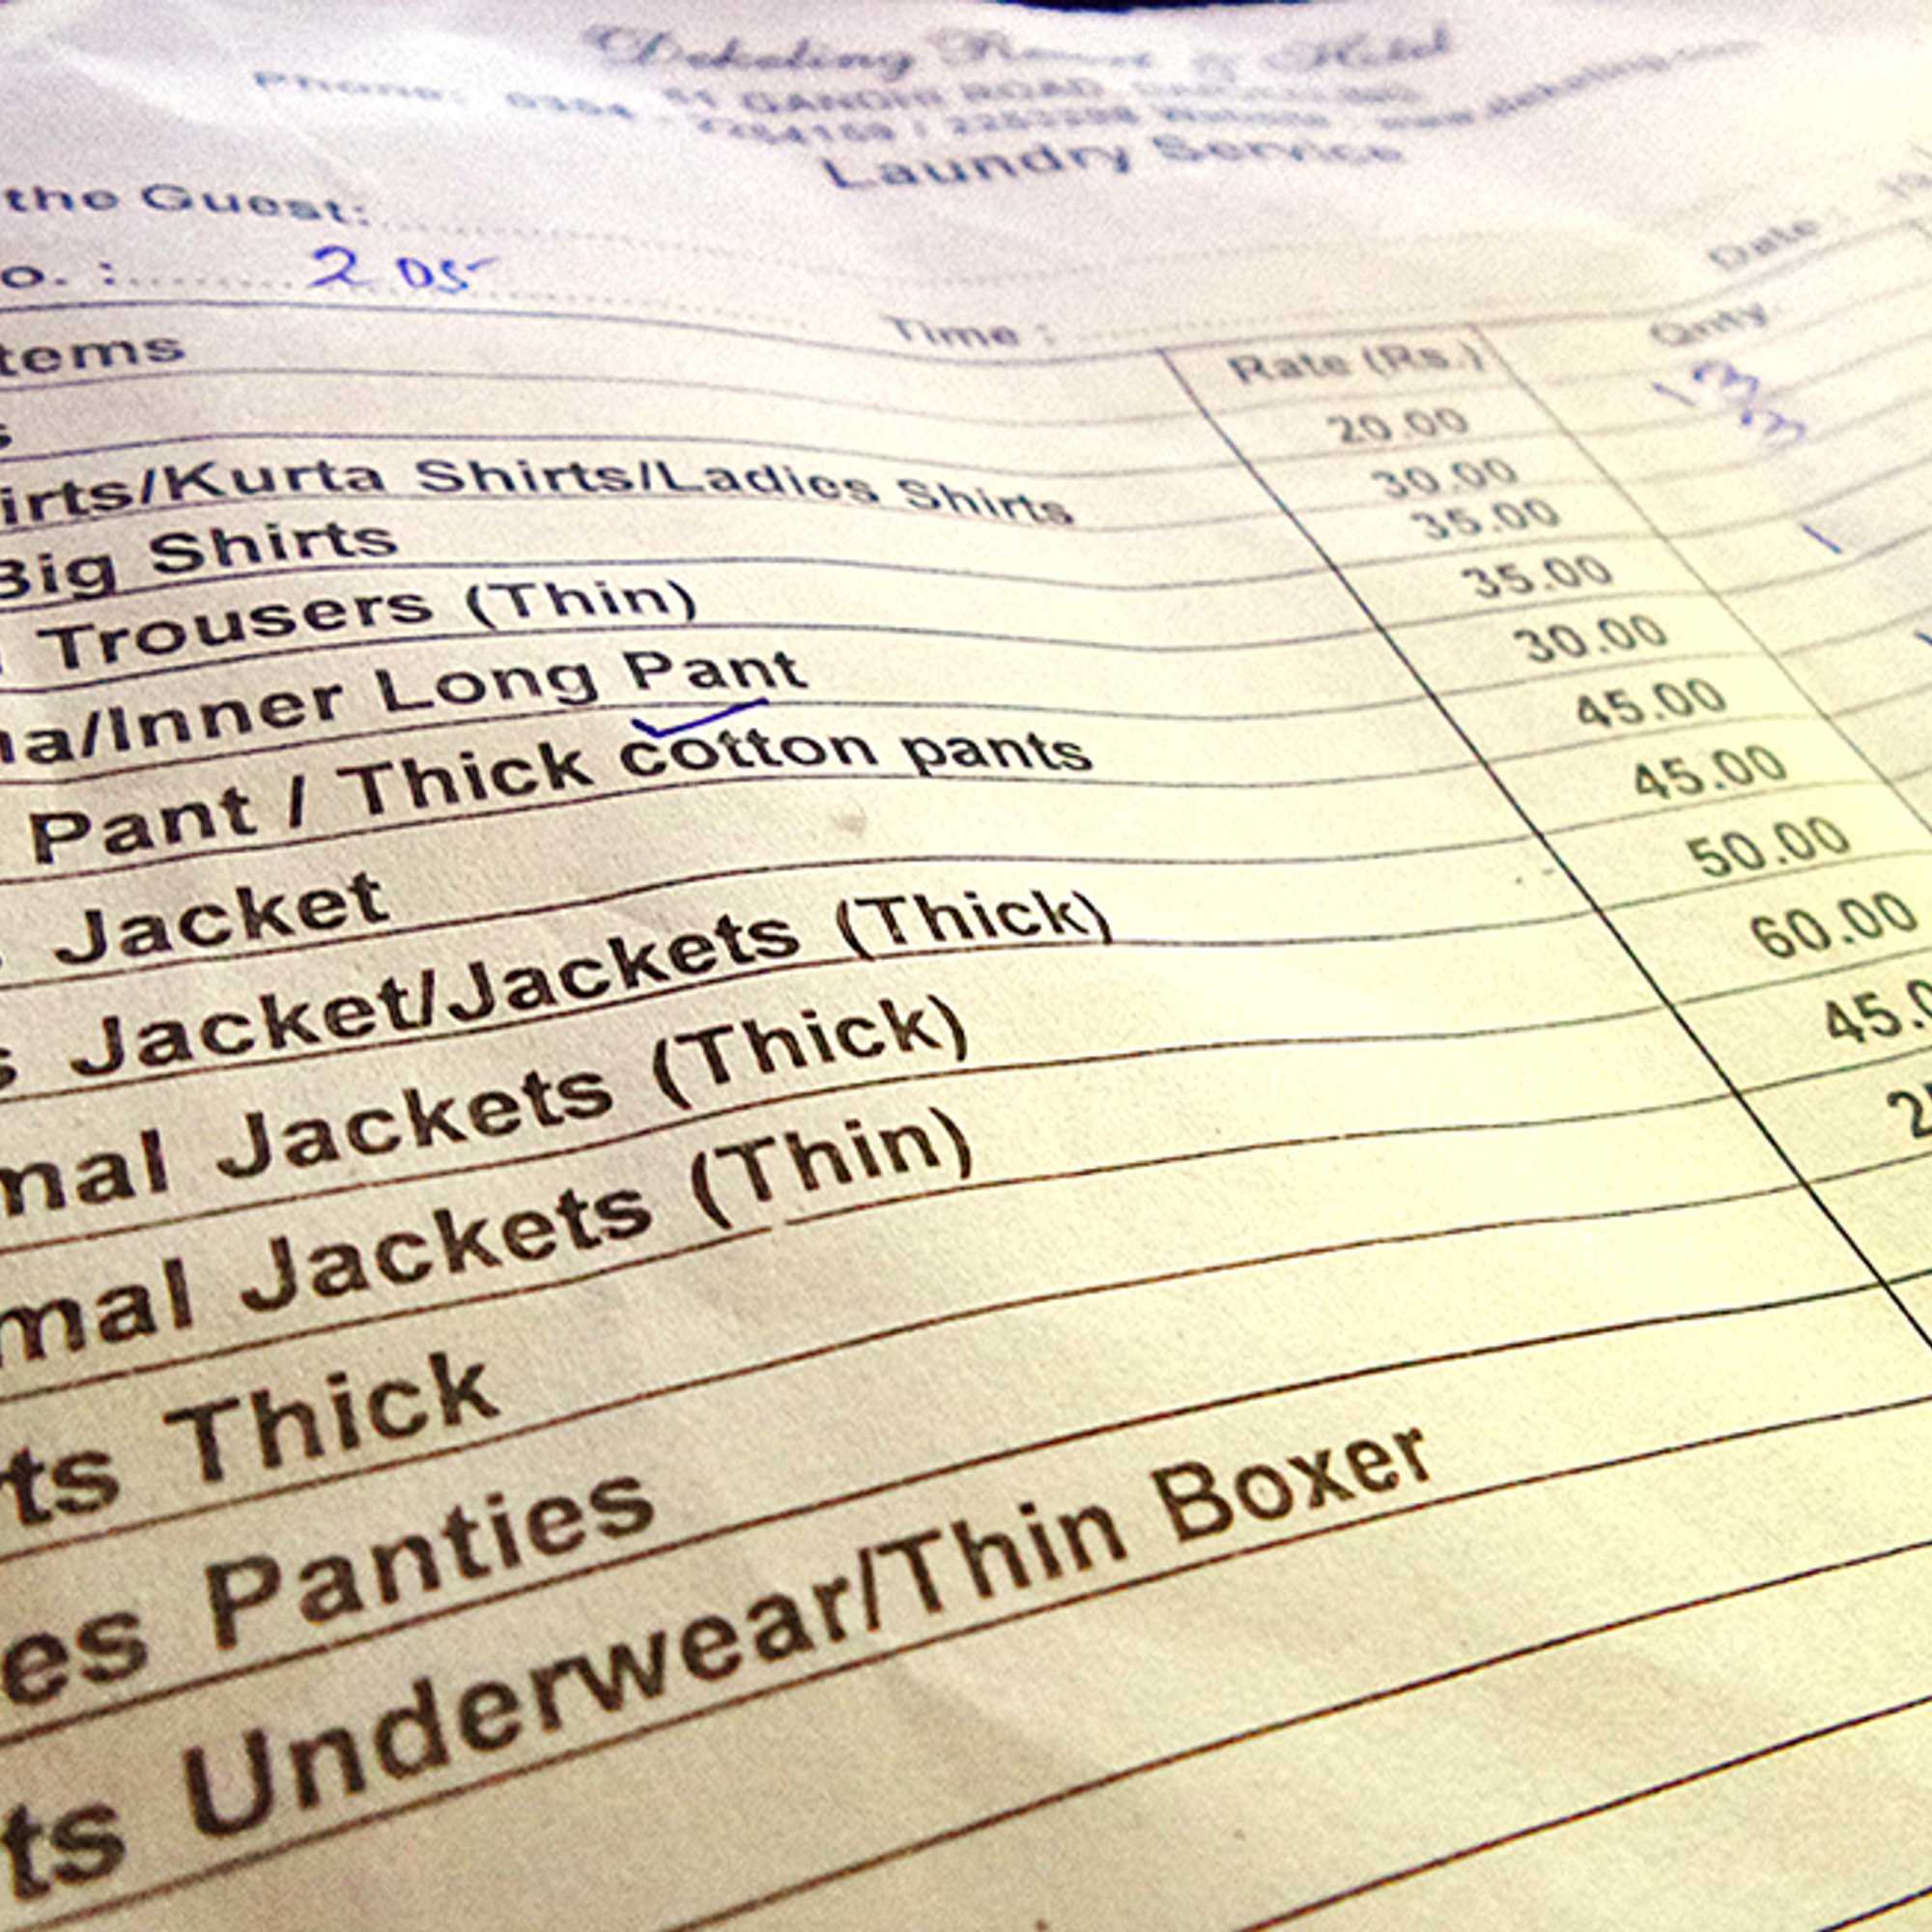 Dekeling Hotel
51 GANDHI ROAD,
Phone: 0354 - 2254159 / Website - www.dekeling.com
Laundry Service
the Guest:
Date :
o. : 205
Time :
tems
Rate (Rs.)
Qnty.
s
20.00
13
irts/Kurta Shirts/Ladies Shirts
30.00
3
Big Shirts
35.00
Trousers (Thin)
35.00
1
na/Inner Long Pant
30.00
Pant / Thick cotton pants
45.00
Jacket
45.00
s Jacket/Jackets (Thick)
50.00
mal Jackets (Thick)
60.00
mal Jackets (Thin)
45.0
ts Thick
2
es Panties
ts Underwear/Thin Boxer